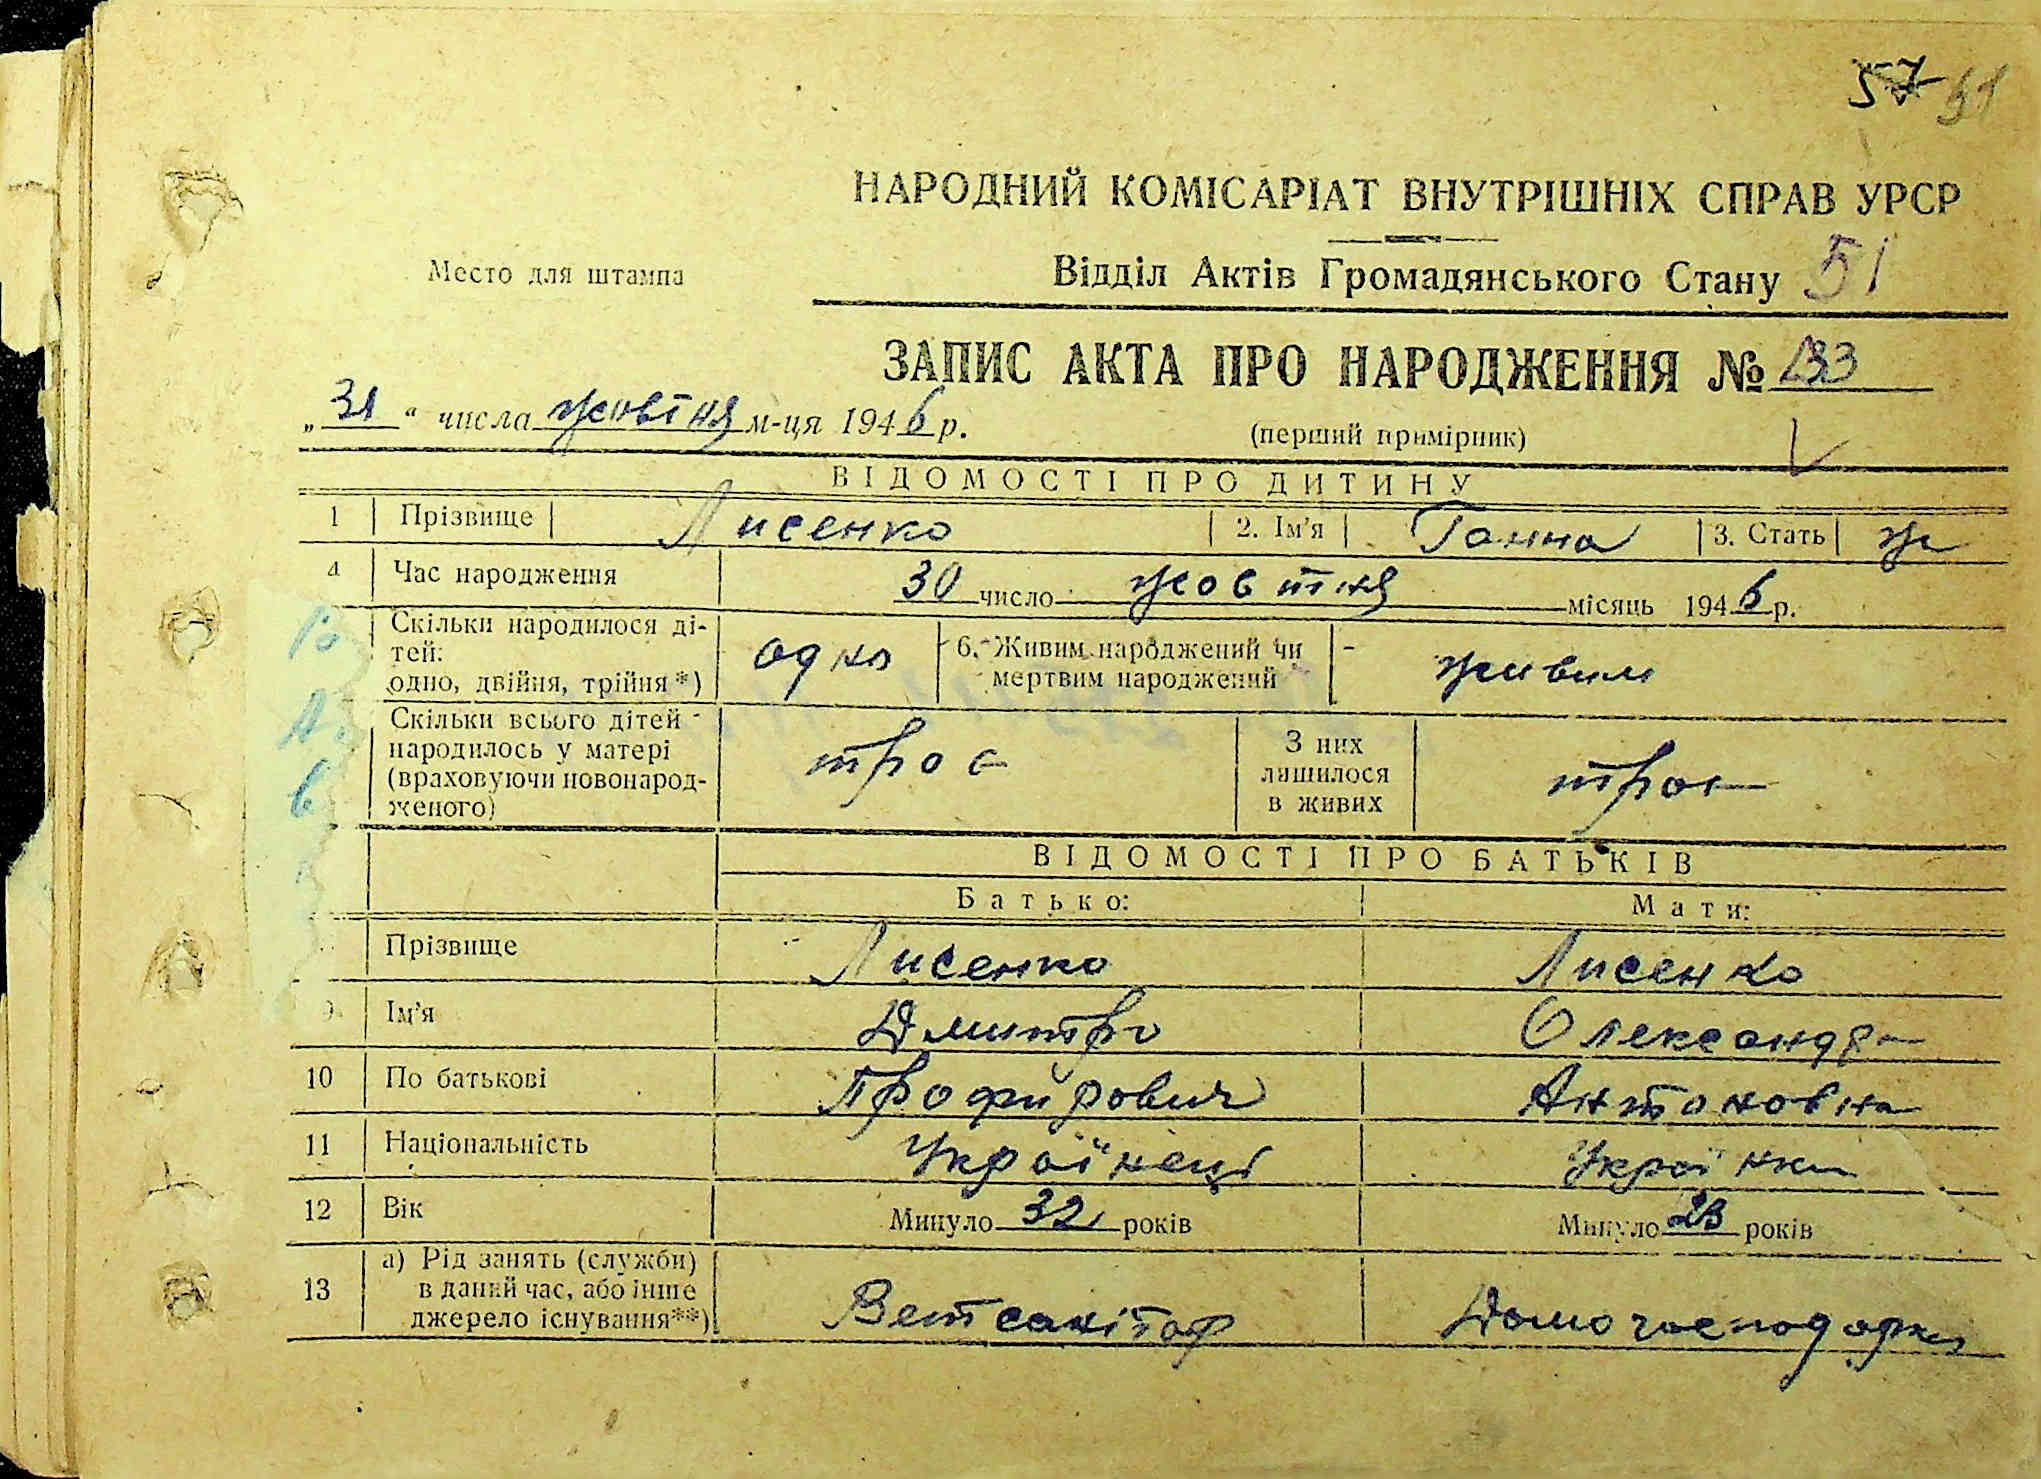 57 51
НАРОДНИЙ КОМІСАРІАТ ВНУТРІШНІХ СПРАВ УРСР
Место для штампа
Відділ Актів Громадянського Стану 51
ЗАПИС АКТА ПРО НАРОДЖЕННЯ №
„31“ числа жовтня м-ця 1946 р.
(перший примірник)
ВІДОМОСТІ ПРО ДИТИНУ
1 Прізвище Лисенко 2. Ім'я Ганна 3. Стать ж
4 Час народження 30 число жовтня місяць 1946 р.
Скільки народилося ді-
тей:
одно, двійня, трійня*) одно 6. Живим народжений чи
мертвим народжений живим
Скільки всього дітей
народилось у матері
(враховуючи новонарод-
женого) троє З них
лишилося
в живих троє
ВІДОМОСТІ ПРО БАТЬКІВ
Батько: Мати:
Прізвище Лисенко Лисенко
9 Ім'я Дмитро Олександра
10 По батькові Профирович Антоновна
11 Національність Українець Українка
12 Вік Минуло 32 років Минуло 23 років
13 а) Рід занять (служби)
в даний час, або інше
джерело існування**) Ветсанітар Домогосподарка